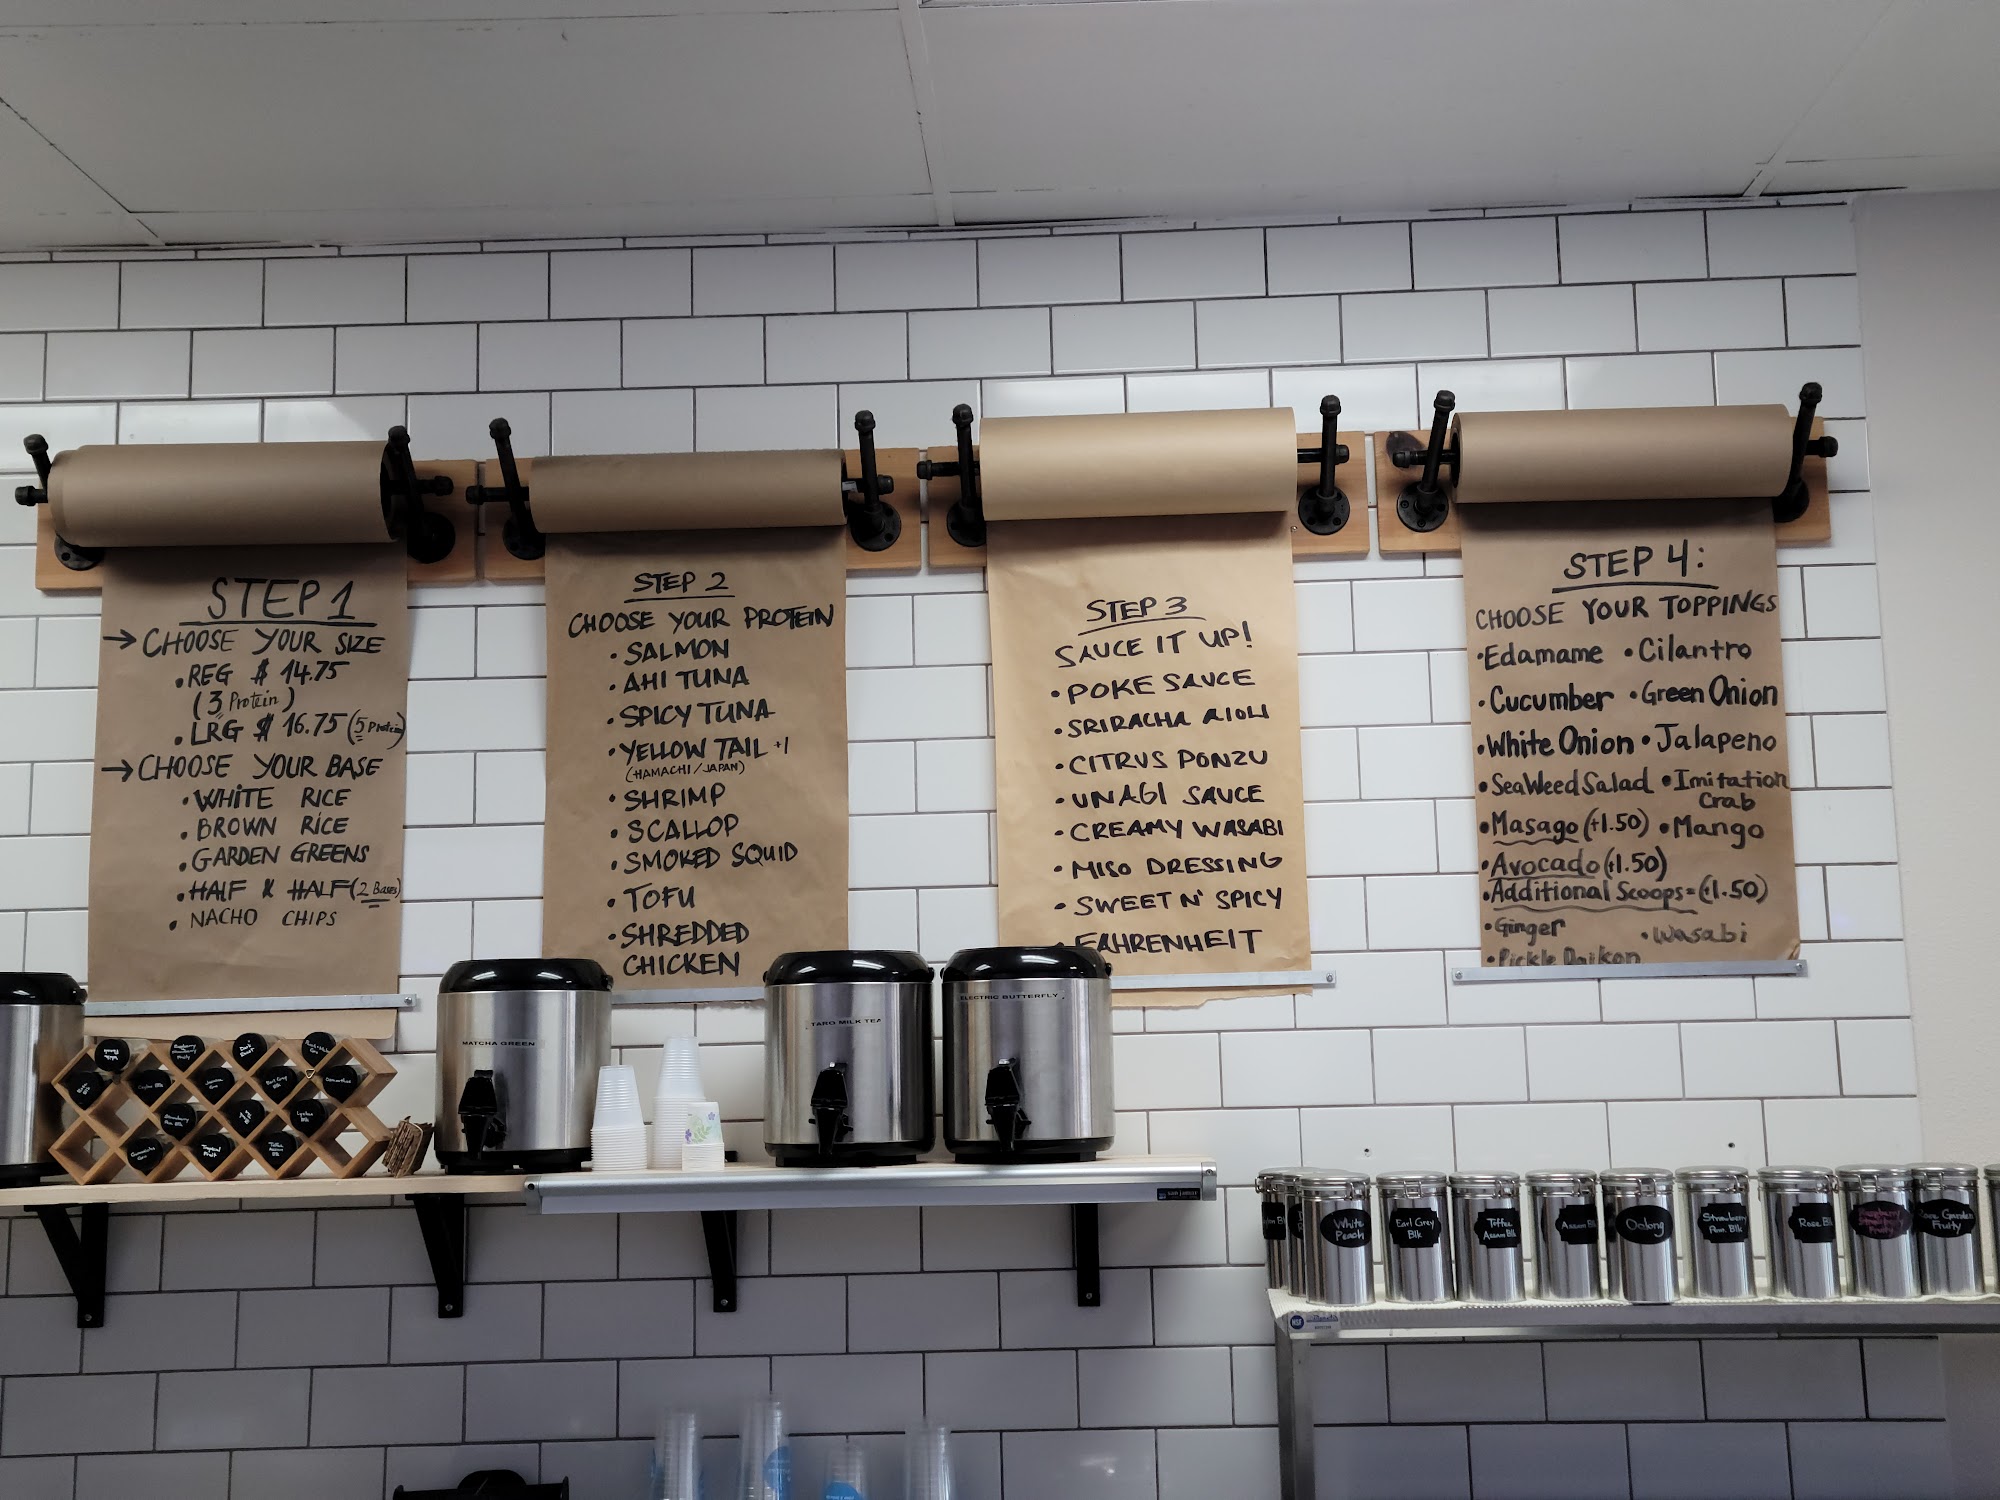 STEP 1
→ CHOOSE YOUR SIZE
• REG $ 14.75
(3 Protein)
• LRG $ 16.75 (5 Protein)
→ CHOOSE YOUR BASE
• WHITE RICE
• BROWN RICE
• GARDEN GREENS
• HALF & HALF (2 Bases)
• NACHO CHIPS
STEP 2
CHOOSE YOUR PROTEIN
• SALMON
• AHI TUNA
• SPICY TUNA
• YELLOW TAIL +1
(HAMACHI / JAPAN)
• SHRIMP
• SCALLOP
• SMOKED SQUID
• TOFU
• SHREDDED
CHICKEN
STEP 3
SAUCE IT UP!
• POKE SAUCE
• SRIRACHA AIOLI
• CITRUS PONZU
• UNAGI SAUCE
• CREAMY WASABI
• MISO DRESSING
• SWEET N' SPICY
• FAHRENHEIT
STEP 4:
CHOOSE YOUR TOPPINGS
• Edamame • Cilantro
• Cucumber • Green Onion
• White Onion • Jalapeno
• SeaWeed Salad • Imitation
Crab
• Masago (+1.50) • Mango
• Avocado (+1.50)
• Additional Scoops = (+1.50)
• Ginger • Wasabi
• Pickle Daikon
MATCHA GREEN
TARO MILK TEA
ELECTRIC BUTTERFLY
Earl Grey
Blk
Tropical
Fruit
Toffee
Assam
Blk
White
Peach
Earl Grey
Blk
Toffee
Assam Blk
Assam Bl
Oolong
Strawberry
Rom. Blk
Rose Bl
Raspberry
Strawberry
Fruity
Rose Garden
Fruity
NSF